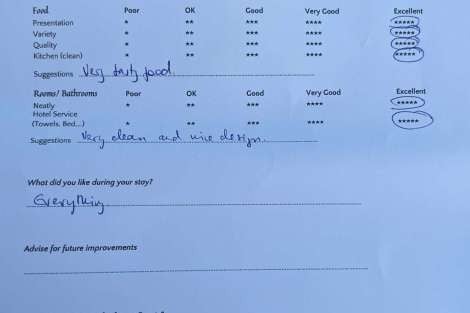 Food Poor OK Good Very Good Excellent
Presentation * ** *** **** *****
Variety * ** *** **** *****
Quality * ** *** **** *****
Kitchen (clean) * ** *** **** *****
Suggestions Very tasty food.
Rooms/ Bathrooms Poor OK Good Very Good Excellent
Neatly * ** *** **** *****
Hotel Service
(Towels, Bed...) * ** *** **** *****
Suggestions Very clean and nice design.
What did you like during your stay?
Everything
Advise for future improvements